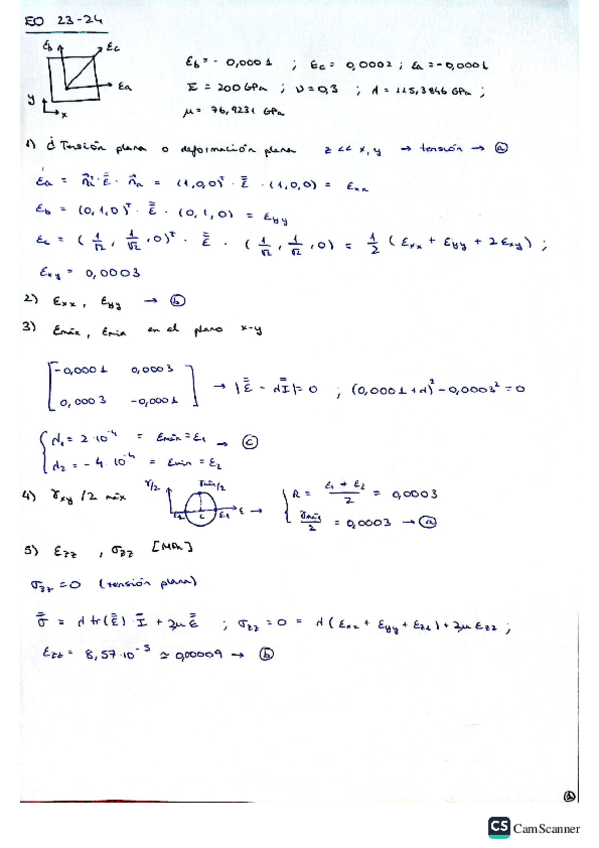 EO 23-24
εb εc
εa
y
x
εb = - 0,0001 ; εc = 0,0002 ; εa = - 0,0001
E = 200 GPa ; ν = 0,3 ; λ = 115,3846 GPa ;
μ = 76,9231 GPa
1) ¿ Tensión plana o deformación plana z << x, y → tensión → ⓐ
εa = n̄ᵀ · ε̿ · n̄a = (1,0,0)ᵀ · ε̿ · (1,0,0) = εxx
εb = (0,1,0)ᵀ · ε̿ · (0,1,0) = εyy
εc = (1/√2, 1/√2, 0)ᵀ · ε̿ · (1/√2, 1/√2, 0) = 1/2 (εxx + εyy + 2εxy) ;
εxy = 0,0003
2) εxx, εyy → ⓑ
3) εmáx, εmin en el plano x-y
[-0,0001 0,0003
0,0003 -0,0001] → |ε̿ - λI̿| = 0 ; (0,0001 + λ)² - 0,0003² = 0
{ λ1 = 2·10⁻⁴ = εmáx = ε1 → ⓒ
λ2 = - 4·10⁻⁴ = εmin = ε2
4) γxy /2 máx
γ/2 γmáx/2
ε2 c ε1 ε →
{ R = (ε1 + ε2)/2 = 0,0003
γmáx/2 = 0,0003 → ⓐ
5) εzz, σzz [MPa]
σzz = 0 (tensión plana)
σ̿ = λ tr(ε̿) · I̿ + 2μ ε̿ ; σzz = 0 = λ(εxx + εyy + εzz) + 2μ εzz ;
εzz = 8,57·10⁻⁵ ≃ 0,00009 → ⓑ
CS CamScanner